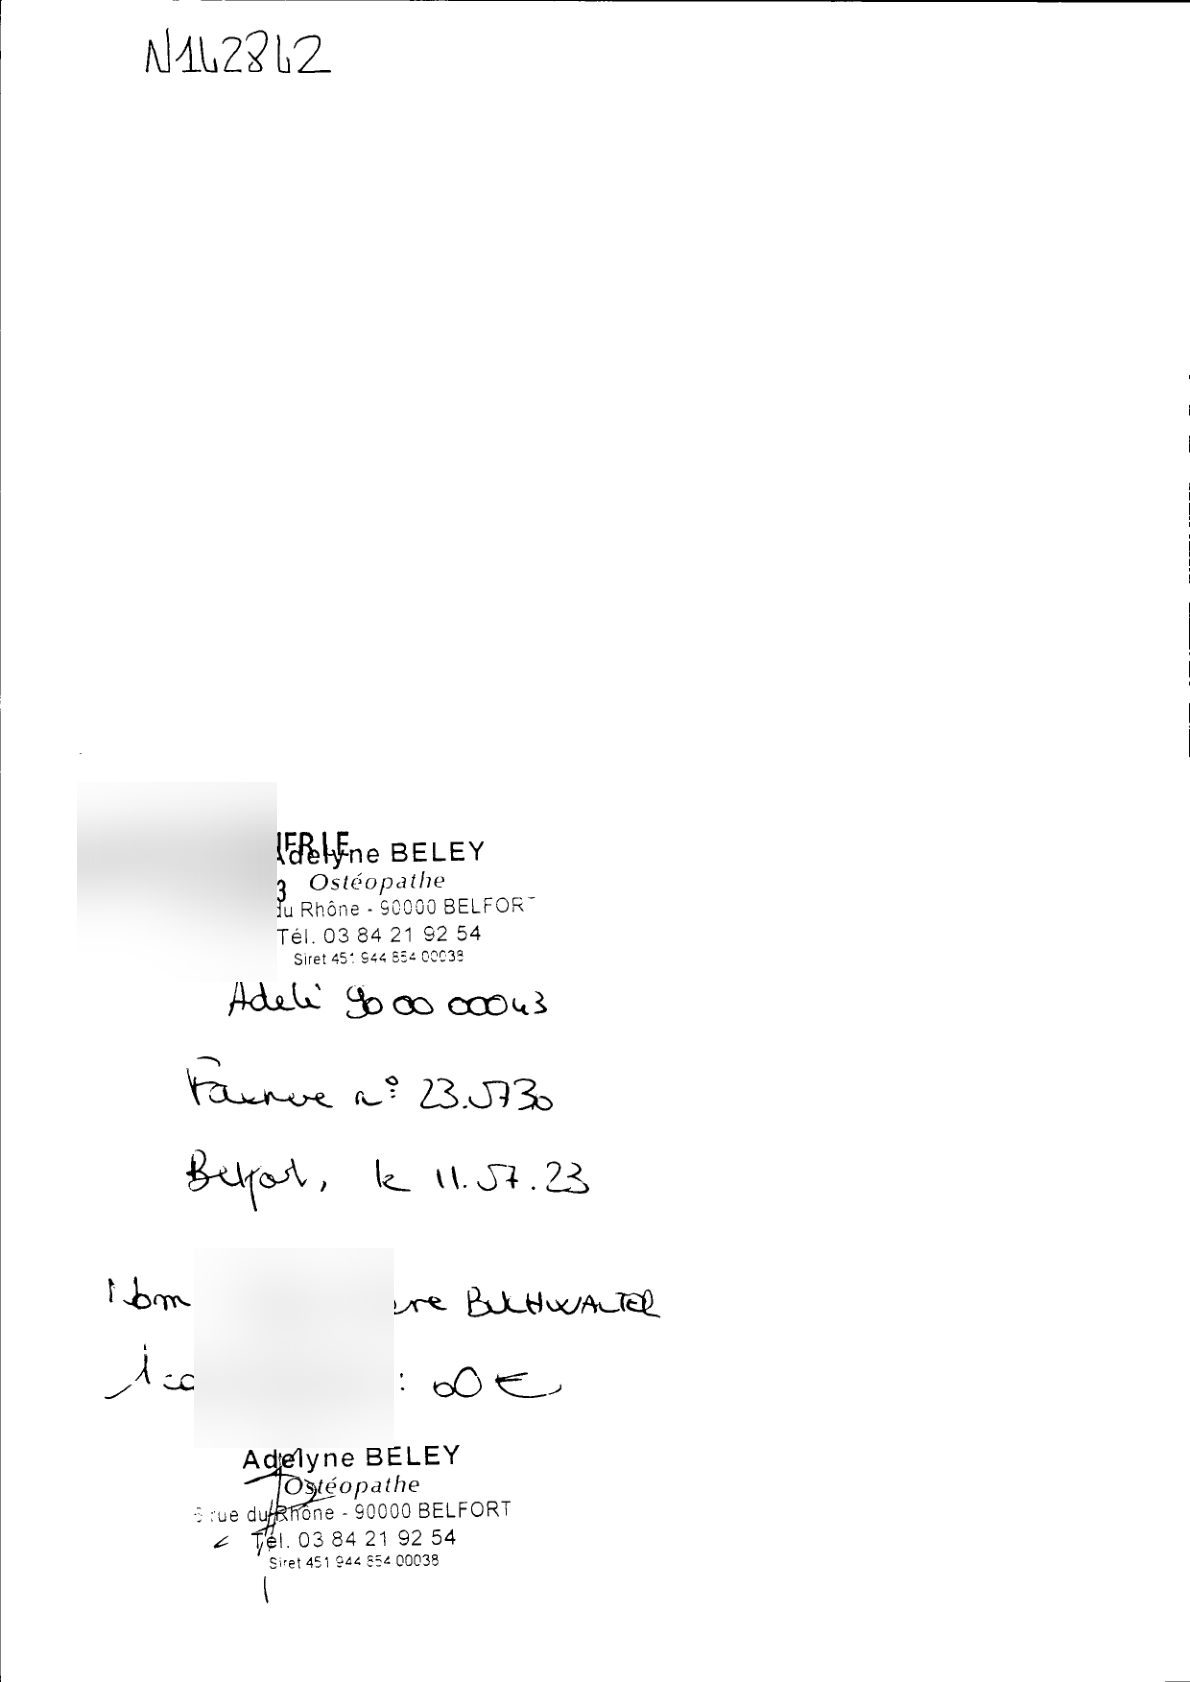 N142842
Adelyne BELEY
Ostéopathe
du Rhône - 90000 BELFORT
Tél. 03 84 21 92 54
Siret 451 944 854 00038
Adeli 90 00 00043
Facture n° 23.5730
Belfort, le 11.57.23
BUCHWALTER
: 60 €
Adelyne BELEY
Ostéopathe
rue du Rhône - 90000 BELFORT
Tél. 03 84 21 92 54
Siret 451 944 854 00038